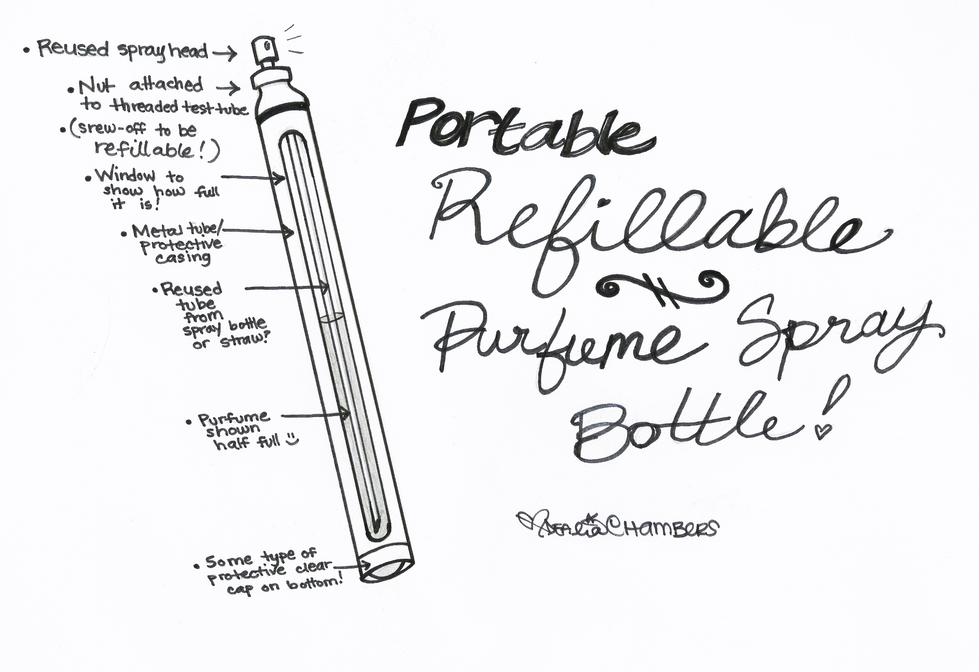 • Reused spray head
• Nut attached
to threaded test tube
• (srew-off to be
refillable!)
• Window to
show how full
it is!
• Metal tube/
protective
casing
• Reused
tube
from
spray bottle
or straw?
• Purfume
shown
half full
• Some type of
protective clear
cap on bottom!
Portable
Refillable
Purfume Spray
Bottle!
Chambers